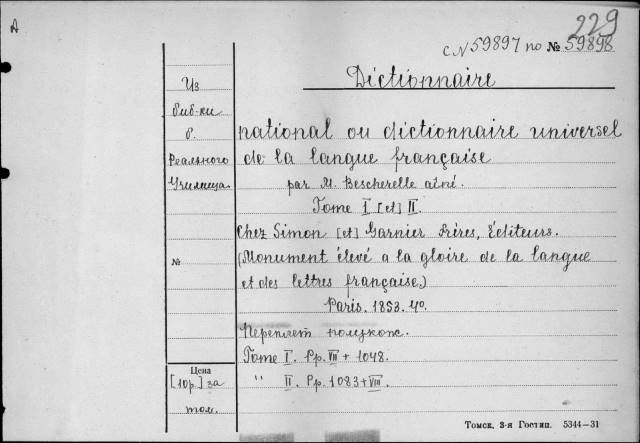 А
229
с № 59897 по № 59898
Dictionnaire
Из
биб-ки
б.
Реального
Училища
national ou dictionnaire universel
de la langue française
par M. Bescherelle aîné.
Tome I [et] II.
Chez Simon [et] Garnier Frères, Éditeurs.
№
(Monument élevé a la gloire de la langue
et des lettres française.)
Paris. 1853. 4º.
Переплет полукож.
Tome I. Pp. VIII + 1048.
" II. Pp. 1083 + VIII.
Цена
[10р.] за
том.
Томск, 3-я Гостип. 5344—31